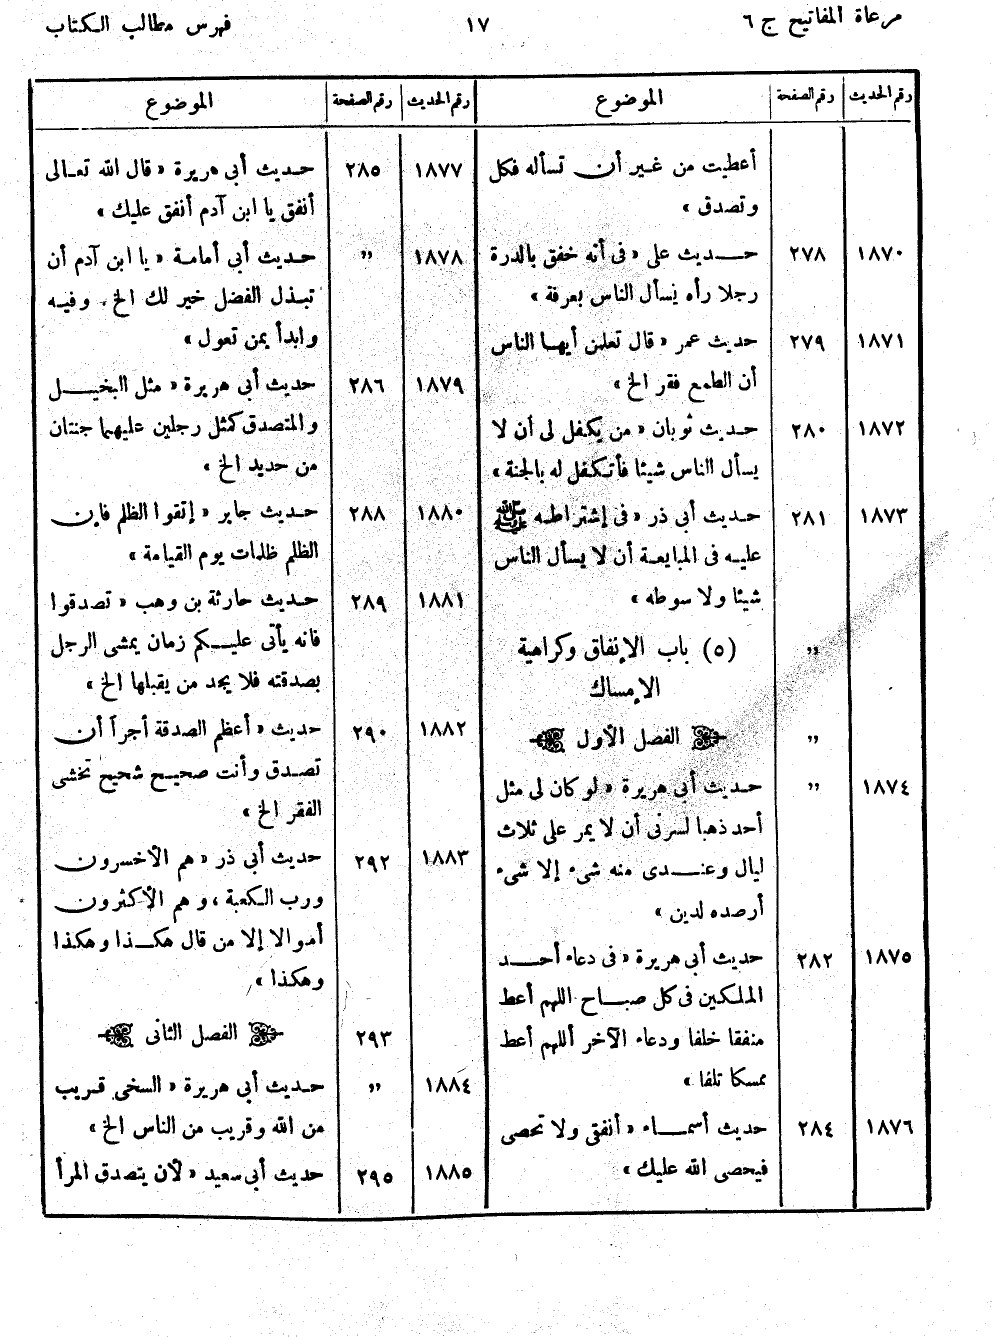 مرعاة المفاتيح ج ٦
١٧
فهرس مطالب الكتاب
رقم الحديث رقم الصفحة الموضوع
أعطيت من غير أن تسأله فكل
وتصدق »
١٨٧٠ ٢٧٨ حديث على « فى أنه خفق بالدرة
رجلا رأه يسأل الناس بعرفة »
١٨٧١ ٢٧٩ حديث عمر « قال تعلمن أيها الناس
أن الطمع فقر الخ »
١٨٧٢ ٢٨٠ حديث ثوبان « من يكفل لى أن لا
يسأل الناس شيئا فأتكفل له بالجنة »
١٨٧٣ ٢٨١ حديث أبى ذر « فى إشتراطه ﷺ
عليه فى المبايعة أن لا يسأل الناس
شيئا ولا سوطه »
” (٥) باب الإنفاق وكراهية
الإمساك
” الفصل الأول
١٨٧٤ ” حديث أبى هريرة « لو كان لى مثل
أحد ذهبا لسرنى أن لا يمر على ثلاث
ليال وعندى منه شىء إلا شىء
أرصده لدين »
١٨٧٥ ٢٨٢ حديث أبى هريرة « فى دعاء أحد
الملكين فى كل صباح اللهم أعط
منفقا خلفا ودعاء الآخر أللهم أعط
ممسكا تلفا »
١٨٧٦ ٢٨٤ حديث أسماء « أنفقى ولا تحصى
فيحصى الله عليك »
رقم الحديث رقم الصفحة الموضوع
١٨٧٧ ٢٨٥ حديث أبى هريرة « قال الله تعالى
أنفق يا ابن آدم أنفق عليك »
١٨٧٨ ” حديث أبى أمامة « يا ابن آدم أن
تبذل الفضل خير لك الخ، وفيه
وابدأ بمن تعول »
١٨٧٩ ٢٨٦ حديث أبى هريرة « مثل البخيل
والمتصدق كمثل رجلين عليهما جنتان
من حديد الخ »
١٨٨٠ ٢٨٨ حديث جابر « إتقوا الظلم فإن
الظلم ظلمات يوم القيامة »
١٨٨١ ٢٨٩ حديث حارثة بن وهب « تصدقوا
فانه يأتى عليكم زمان يمشى الرجل
بصدقته فلا يجد من يقبلها الخ »
١٨٨٢ ٢٩٠ حديث « أعظم الصدقة أجراً أن
تصدق وأنت صحيح شحيح تخشى
الفقر الخ »
١٨٨٣ ٢٩٢ حديث أبى ذر « هم الأخسرون
ورب الكعبة، وهم الأكثرون
أموالا إلا من قال هكذا وهكذا
وهكذا »
٢٩٣ الفصل الثانى
١٨٨٤ ” حديث أبى هريرة « السخى قريب
من الله وقريب من الناس الخ »
١٨٨٥ ٢٩٥ حديث أبى سعيد « لأن يتصدق المرأ